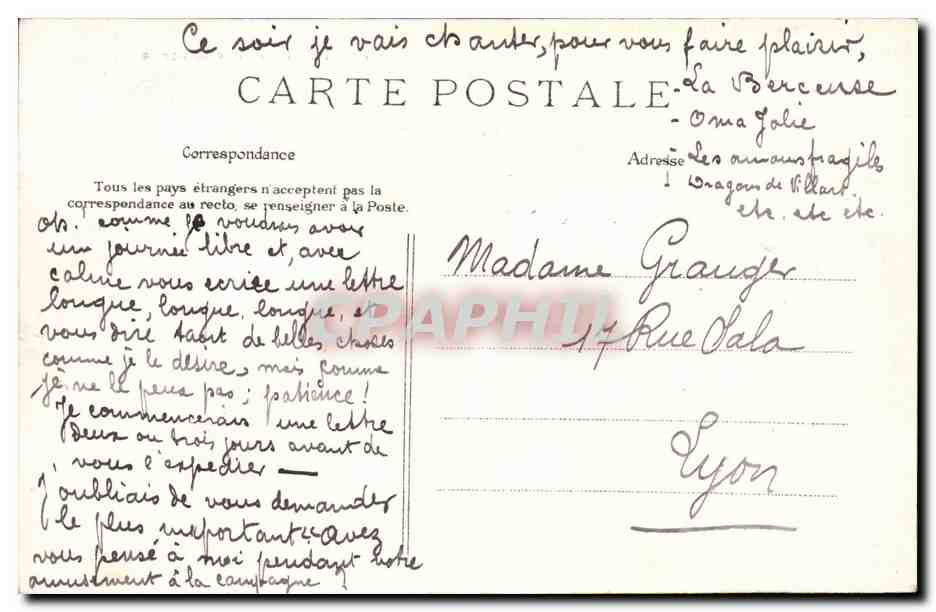 Ce soir je vais chanter, pour vous faire plaisir,
- La Berceuse
- O ma Jolie
- Les amours fragiles
Dragons de Villars.
etc. etc etc.
CARTE POSTALE
Correspondance
Adresse
Tous les pays étrangers n'acceptent pas la
correspondance au recto, se renseigner à la Poste.
oh! comme je voudrais avoir
une journée libre et, avec
calme vous ecrire une lettre
longue, longue, longue, et
vous dire tant de belles choses
comme je le désire, mais comme
je ne le peux pas; patience!
Je commencerais une lettre
deux ou trois jours avant de
vous l'expedier —
J'oubliais de vous demander
le plus important "Avez
vous pensé à moi pendant votre
amusement à la campagne ?
Madame Granger
17 Rue Sala
Lyon
CPAPHIL